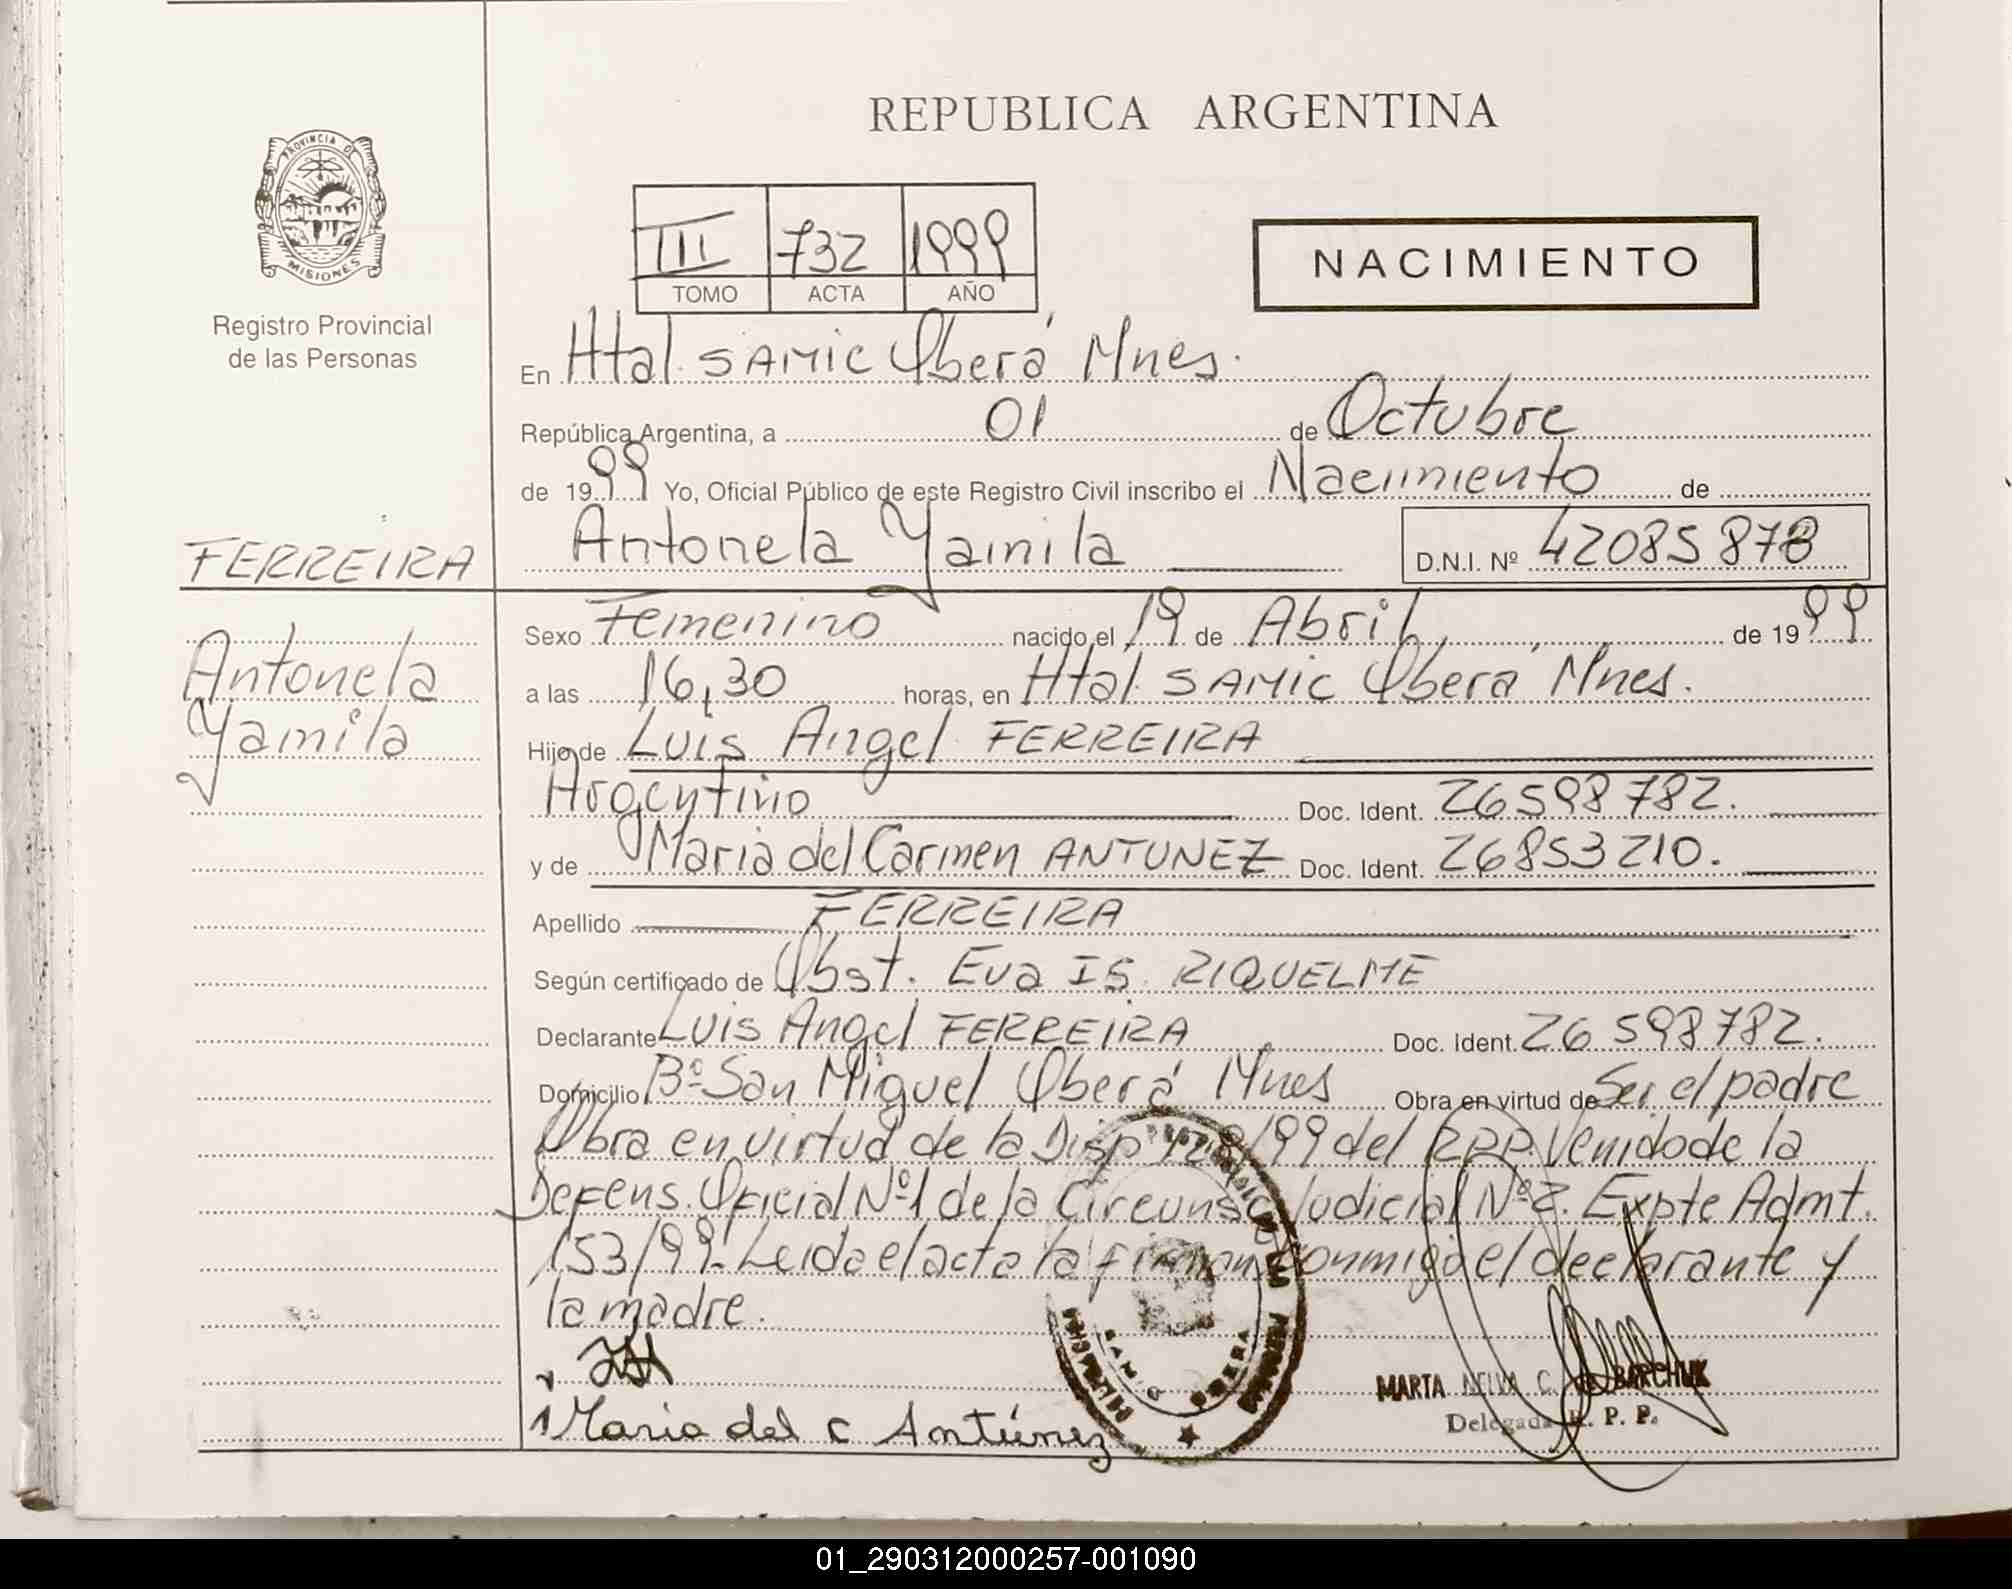 REPUBLICA ARGENTINA
PROVINCIA DE
MISIONES
Registro Provincial
de las Personas
III 732 1999
TOMO ACTA AÑO
NACIMIENTO
En Htal. SAMIC Oberá Mnes.
República Argentina, a 01 de Octubre
de 1999 Yo, Oficial Público de este Registro Civil inscribo el Nacimiento de
FERREIRA
Antonela Yamila
Antonela Yamila D.N.I. Nº 42085878
Sexo Femenino nacido el 19 de Abril de 1999
a las 16,30 horas, en Htal. SAMIC Oberá Mnes.
Hijo de Luis Angel FERREIRA
Argentino Doc. Ident. 26598782.
y de Maria del Carmen ANTUNEZ Doc. Ident. 26853210.
Apellido FERREIRA
Según certificado de Obst. Eva IS. RIQUELME
Declarante Luis Angel FERREIRA Doc. Ident. 26598782.
Domicilio Bº San Miguel Oberá Mnes Obra en virtud de Ser el padre
Obra en virtud de la Disp 128/99 del RPP. Venido de la
Defens. Oficial Nº1 de la Circunsc Judicial Nº2. Expte Admt.
153/99. Leida el acta la firman conmigo el declarante y
la madre.
Maria del C Antúnez
MARTA NELVA C. BARCHUK
Delegada R. P. P.
01_290312000257-001090